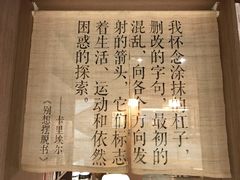 我怀念涂抹的杠子，
删改的字句，最初的
混乱，向各个方向发
射的箭头，它们标志
着生活、运动和依然
困惑的探索。
——卡里埃尔
《别想摆脱书》